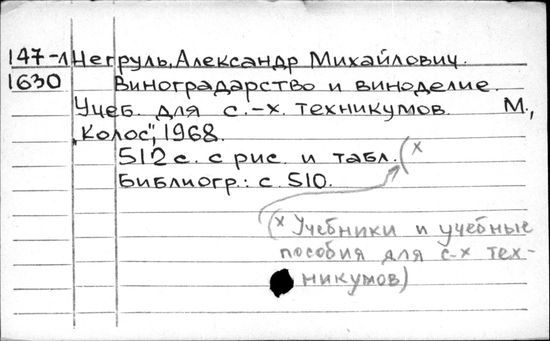 147-л Негруль, Александр Михайлович.
1630 Виноградарство и виноделие.
Учеб. для с.-х. техникумов. М.,
"Колос", 1968.
512 с. с рис. и табл. (x
Библиогр.: с. 510.
(x Учебники и учебные
пособия для с-х тех-
никумов)